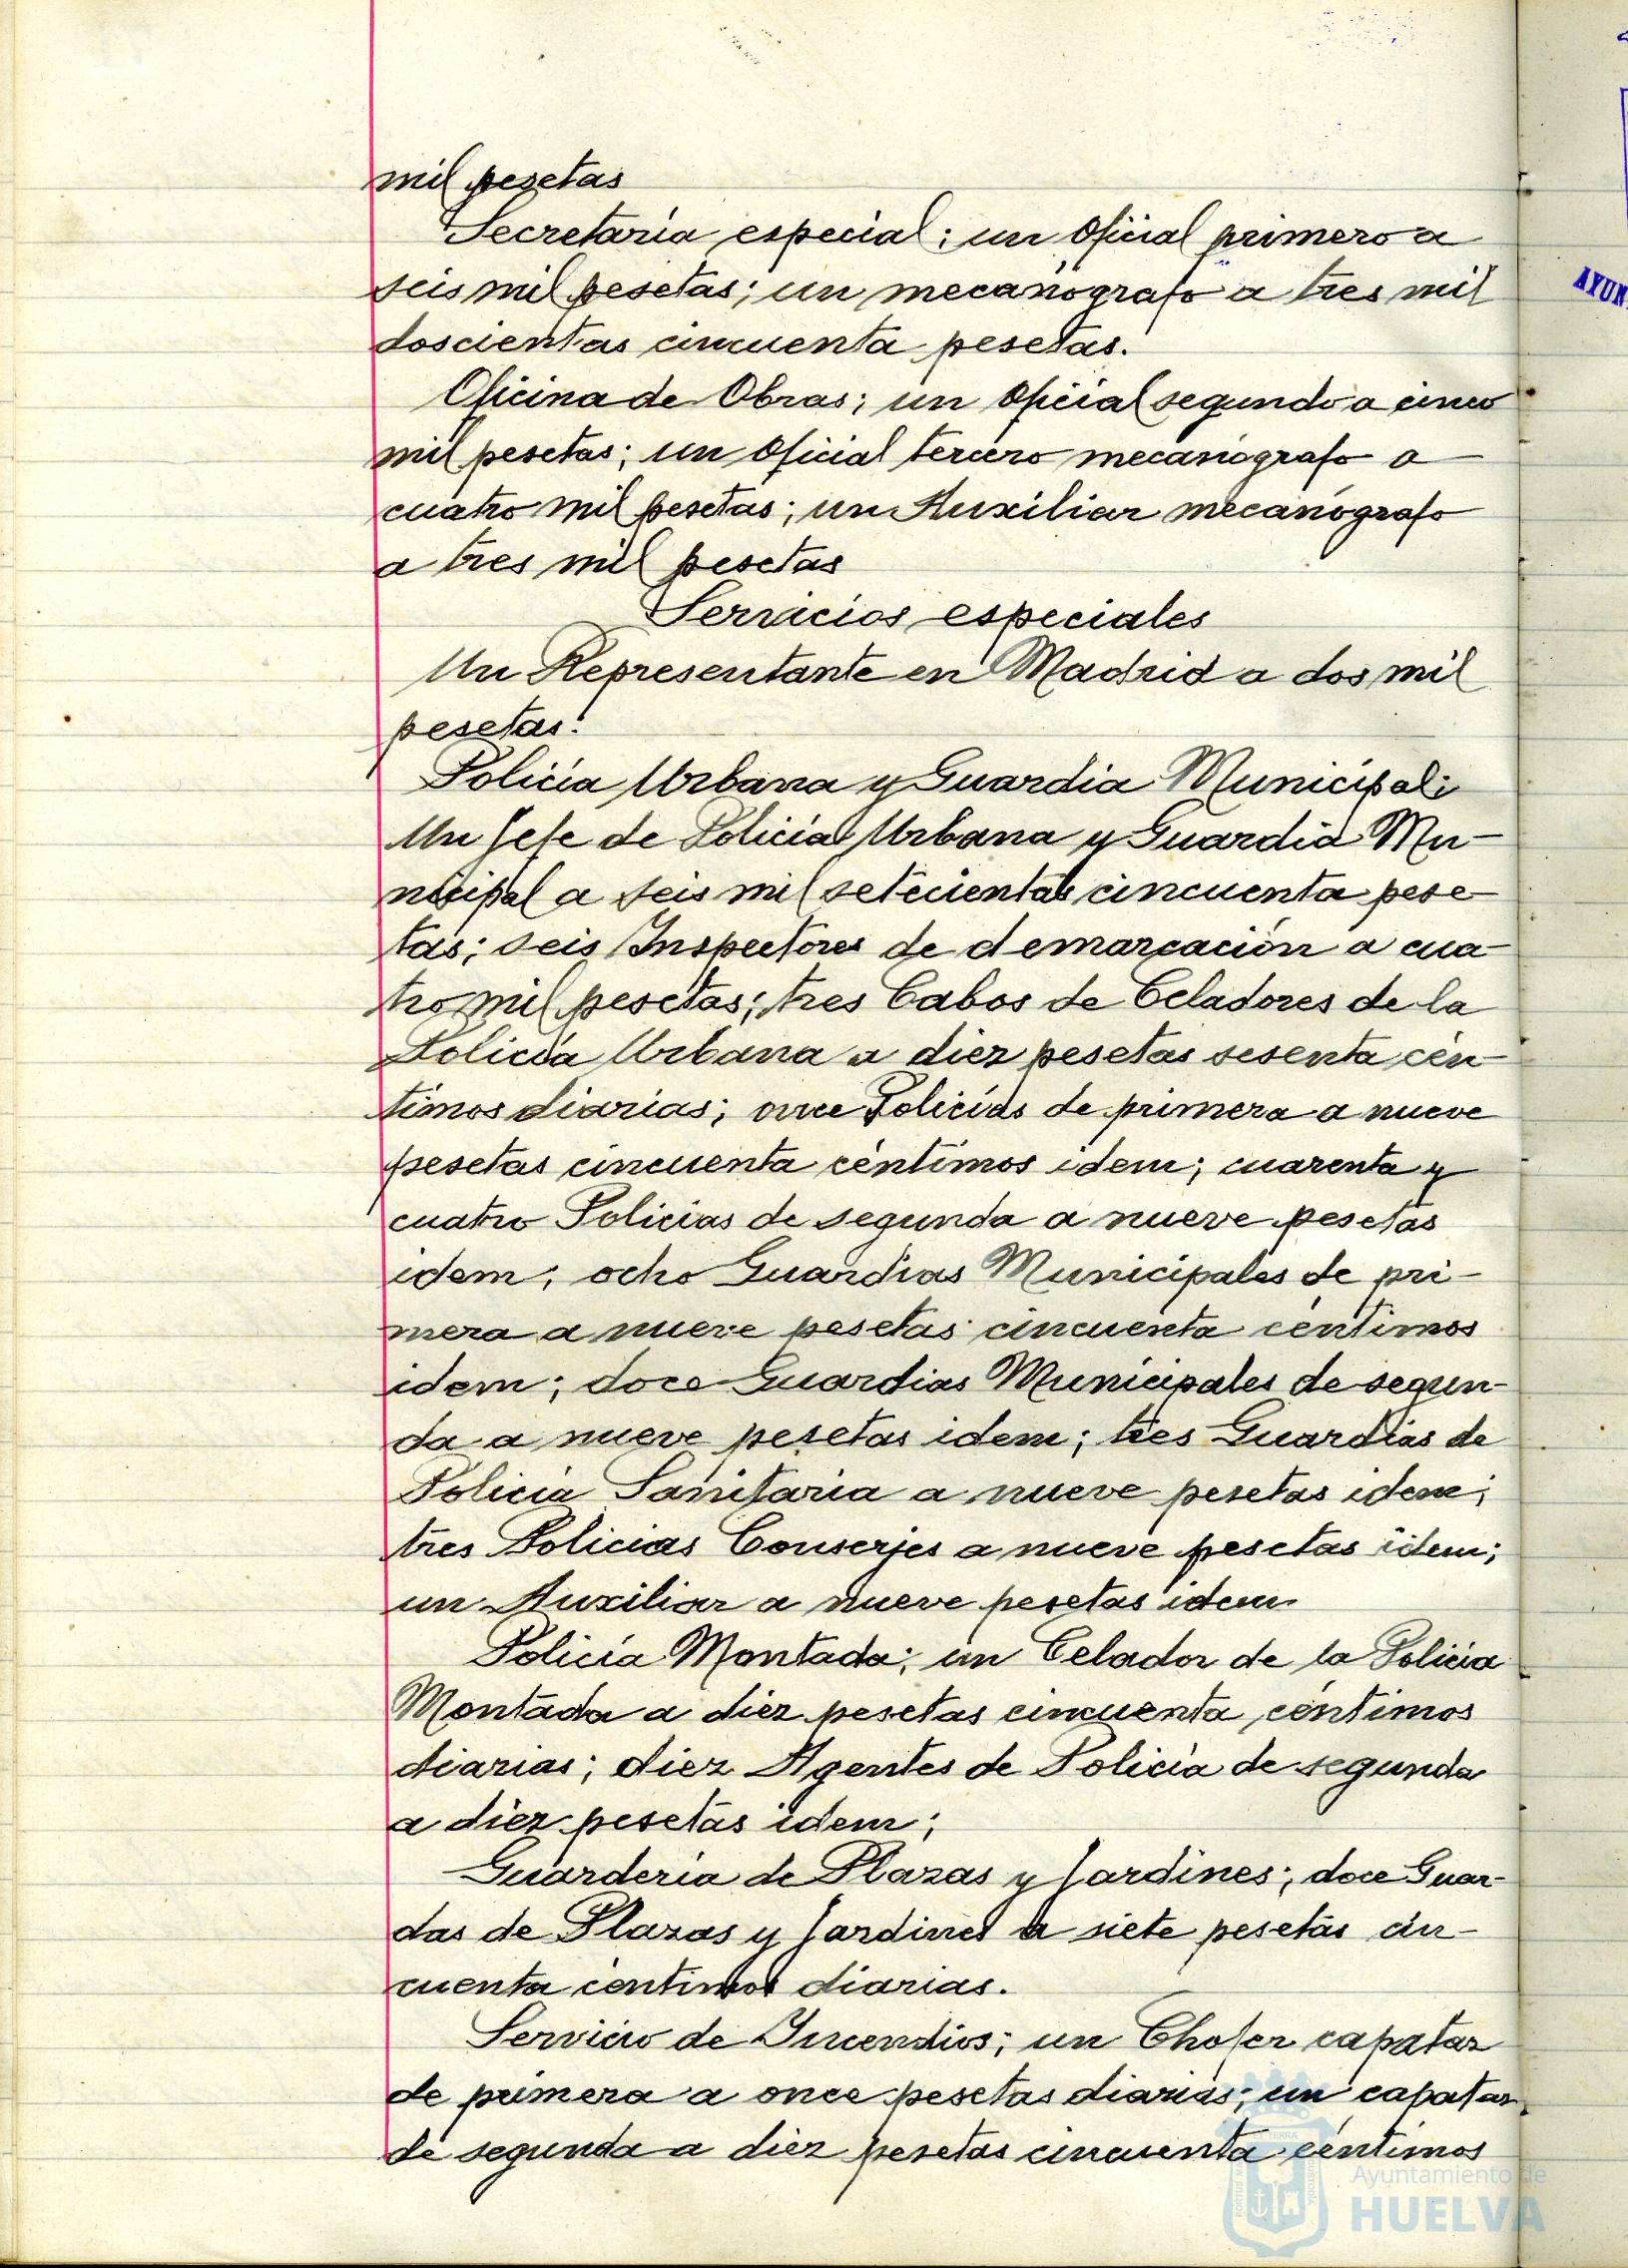 mil pesetas
Secretaría especial; un Oficial primero a
seis mil pesetas; un mecanógrafo a tres mil
doscientas cincuenta pesetas.
Oficina de Obras; un Oficial segundo a cinco
mil pesetas; un Oficial tercero mecanógrafo a
cuatro mil pesetas; un Auxiliar mecanógrafo
a tres mil pesetas
Servicios especiales
Un Representante en Madrid a dos mil
pesetas.
Policía Urbana y Guardia Municipal;
Un Jefe de Policía Urbana y Guardia Mu-
nicipal a seis mil setecientas cincuenta pese-
tas; seis Inspectores de demarcación a cua-
tro mil pesetas; tres Cabos de Celadores de la
Policía Urbana a diez pesetas sesenta cén-
timos diarias; once Policías de primera a nueve
pesetas cincuenta céntimos idem; cuarenta y
cuatro Policías de segunda a nueve pesetas
idem; ocho Guardias Municipales de pri-
mera a nueve pesetas cincuenta céntimos
idem; doce Guardias Municipales de segun-
da a nueve pesetas idem; tres Guardias de
Policía Sanitaria a nueve pesetas idem;
tres Policías Conserjes a nueve pesetas idem;
un Auxiliar a nueve pesetas idem
Policía Montada; un Celador de la Policía
Montada a diez pesetas cincuenta céntimos
diarias; diez Agentes de Policía de segunda
a diez pesetas idem;
Guardería de Plazas y Jardines; doce Guar-
das de Plazas y Jardines a siete pesetas cin-
cuenta céntimos diarias.
Servicio de Incendios; un Chofer capataz
de primera a once pesetas diarias; un capataz
de segunda a diez pesetas cincuenta céntimos
AYUN
Ayuntamiento de
HUELVA